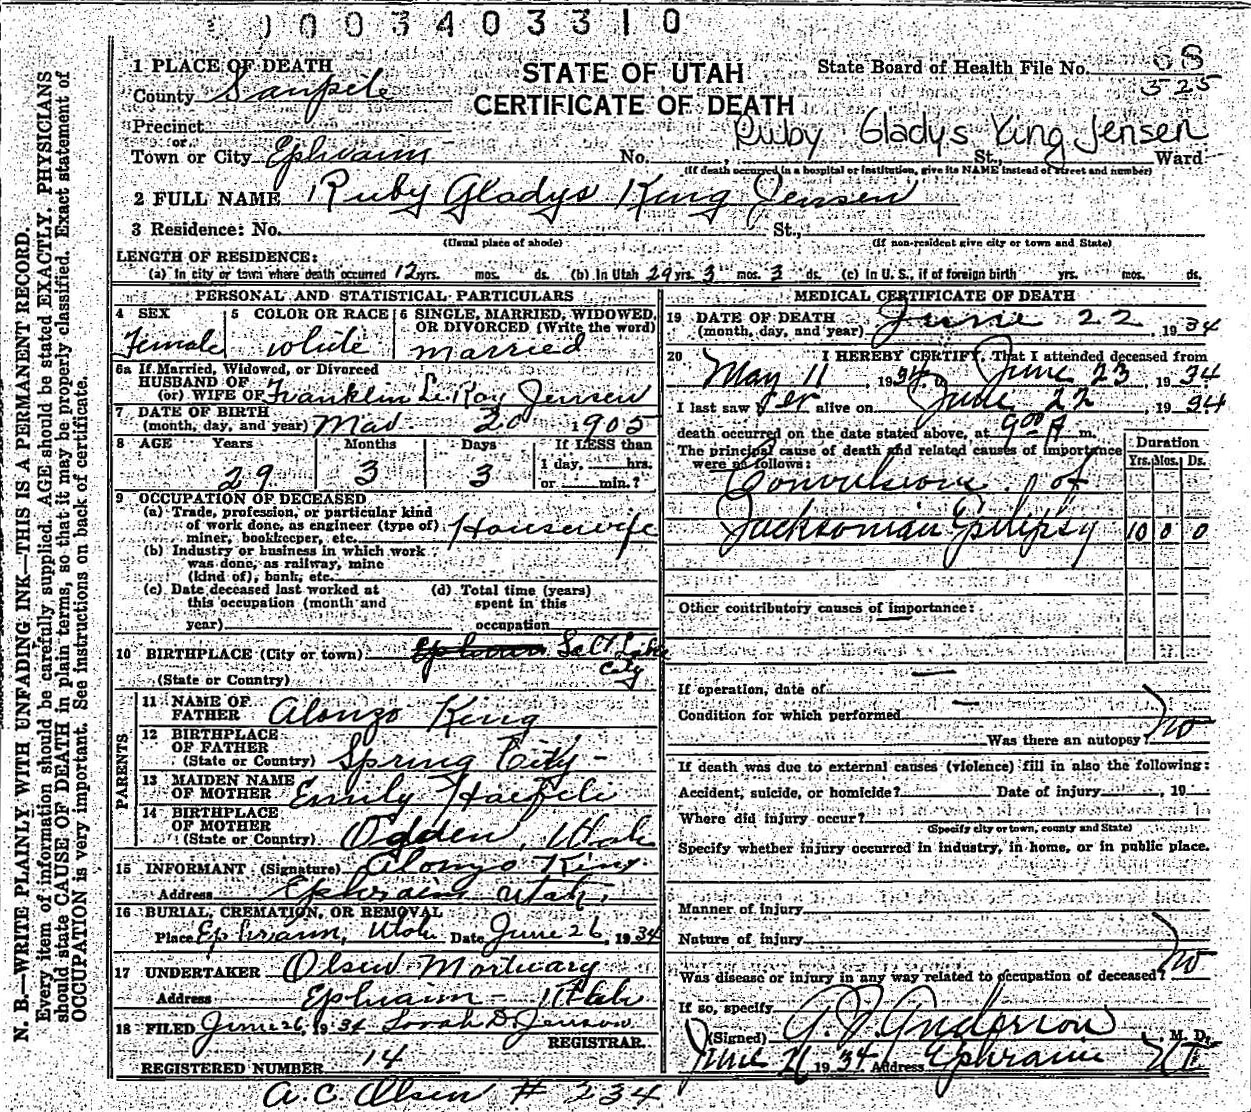 0003403310
1 PLACE OF DEATH
STATE OF UTAH
State Board of Health File No. 68
County Sanpete
CERTIFICATE OF DEATH
325
Precinct
or
Ruby Gladys King Jensen
Town or City Ephraim No. , St., Ward
(If death occurred in a hospital or institution, give its NAME instead of street and number)
2 FULL NAME Ruby Gladys King Jensen
3 Residence: No. St.,
(Usual place of abode) (If non-resident give city or town and State)
LENGTH OF RESIDENCE:
(a) In city or town where death occurred 12 yrs. mos. ds. (b) In Utah 29 yrs. 3 mos. 3 ds. (c) In U. S., if of foreign birth yrs. mos. ds.
PERSONAL AND STATISTICAL PARTICULARS
4 SEX 5 COLOR OR RACE 6 SINGLE, MARRIED, WIDOWED,
OR DIVORCED (Write the word)
Female white married
6a If Married, Widowed, or Divorced
HUSBAND OF
(or) WIFE OF Franklin LeRoy Jensen
7 DATE OF BIRTH
(month, day, and year) Mar 20 1905
8 AGE Years Months Days If LESS than
1 day, hrs.
29 3 3 or min.?
9 OCCUPATION OF DECEASED
(a) Trade, profession, or particular kind
of work done, as engineer (type of)
miner, bookkeeper, etc. Housewife
(b) Industry or business in which work
was done, as railway, mine
(kind of), bank, etc.
(c) Date deceased last worked at (d) Total time (years)
this occupation (month and spent in this
year) occupation
10 BIRTHPLACE (City or town) Ephraim Salt Lake
City
(State or Country)
PARENTS
11 NAME OF
FATHER Alonzo King
12 BIRTHPLACE
OF FATHER
(State or Country) Spring City -
13 MAIDEN NAME
OF MOTHER Emily Haefele
14 BIRTHPLACE
OF MOTHER
(State or Country) Ogden, Utah
15 INFORMANT (Signature) Alonzo King
Address Ephraim Utah
16 BURIAL, CREMATION, OR REMOVAL
Place Ephraim, Utah Date June 26, 1934
17 UNDERTAKER Olsen Mortuary
Address Ephraim - Utah
18 FILED June 26, 1934 Sorah D. Jenson
REGISTRAR.
REGISTERED NUMBER 14
A.C. Olsen # 234
MEDICAL CERTIFICATE OF DEATH
19 DATE OF DEATH
(month, day, and year) June 22, 1934
20 I HEREBY CERTIFY, That I attended deceased from
May 11, 1934 to June 23, 1934
I last saw her alive on June 22 1934
death occurred on the date stated above, at 9 00 A m.
The principal cause of death and related causes of importance
were as follows:
Duration
Yrs. Mos. Ds.
Convulsions of
Jacksonian Epilipsy 10 0 0
Other contributory causes of importance:
If operation, date of
Condition for which performed
Was there an autopsy? no
If death was due to external causes (violence) fill in also the following:
Accident, suicide, or homicide? Date of injury , 19
Where did injury occur?
(Specify city or town, county and State)
Specify whether injury occurred in industry, in home, or in public place.
Manner of injury
Nature of injury
Was disease or injury in any way related to occupation of deceased? no
If so, specify
(Signed) Anderson M. D.
June 1934 Address Ephraim
N. B.—WRITE PLAINLY WITH UNFADING INK—THIS IS A PERMANENT RECORD.
Every item of information should be carefully supplied. AGE should be stated EXACTLY. PHYSICIANS
should state CAUSE OF DEATH in plain terms, so that it may be properly classified. Exact statement of
OCCUPATION is very important. See instructions on back of certificate.